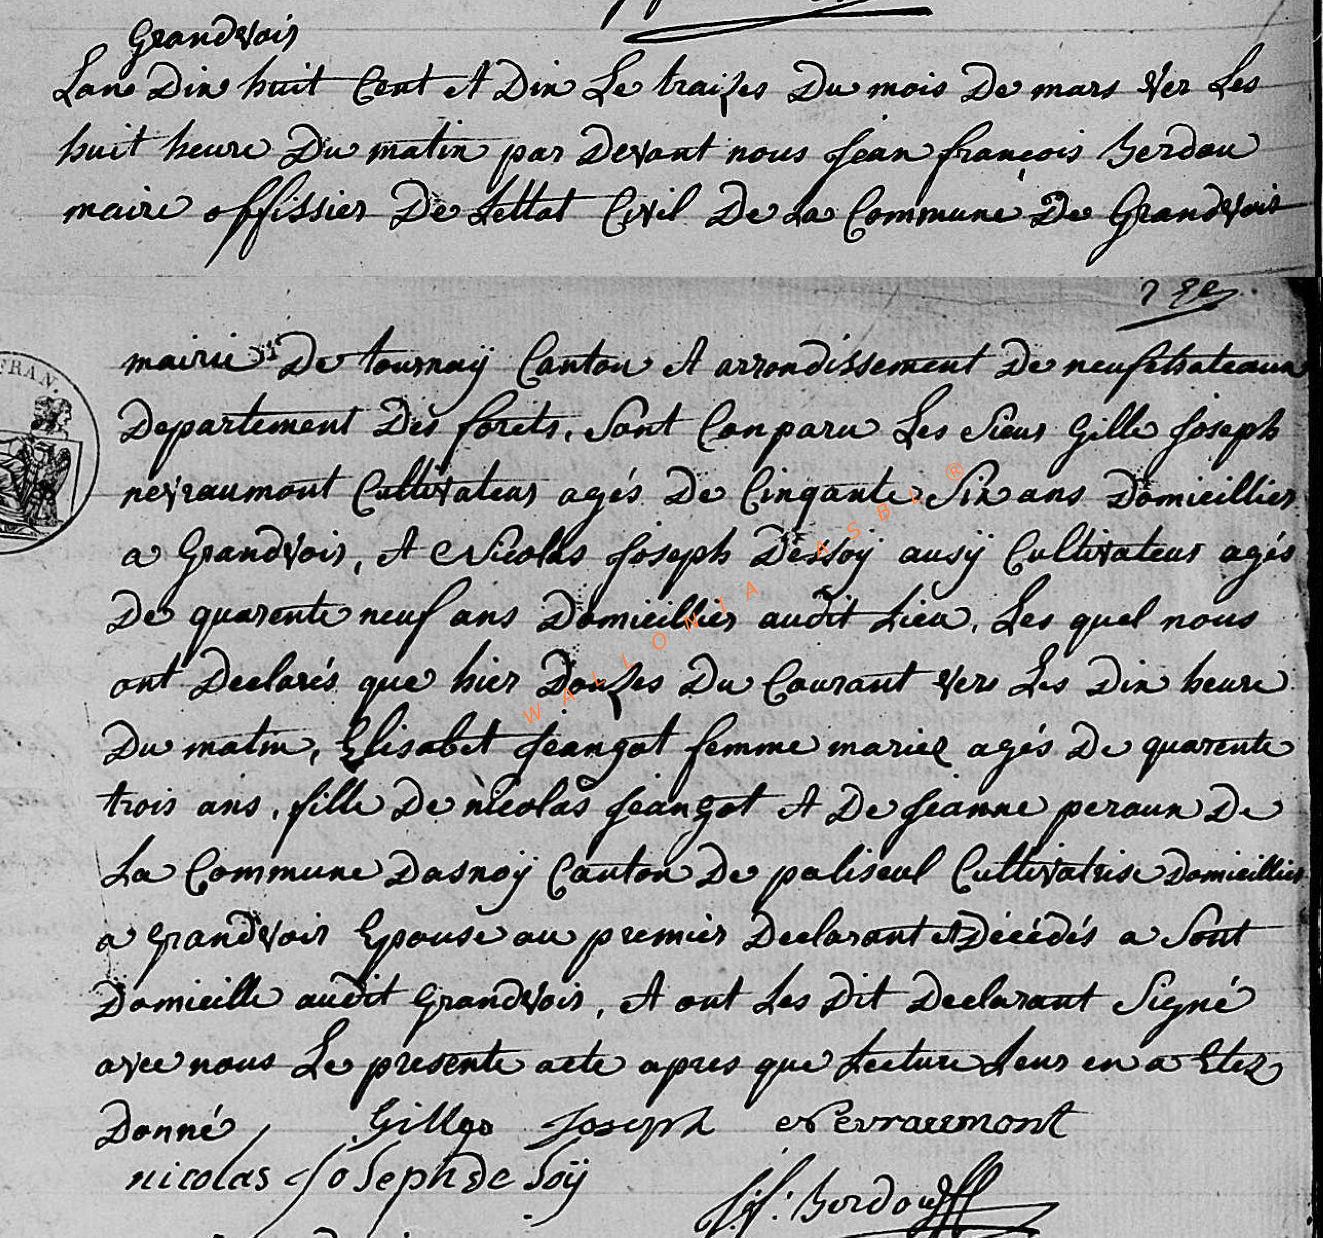 Grandvoir
Lane Dix huit Cent et Dix Le traizes Du mois De mars Ver Les
huit heure Du matin par Devant nous jean françois Berdou
maire offissier De Lettat Civil De La Commune De Grandvoir
mairie De tournaÿ Canton et arrondissement De neufchateaux
Departement Des forets, sont Conparu Les sieus gille joseph
nevraumont Cultivateur agés De Cinqante six ans Domicillier
a Grandvoir, et Nicolas joseph Dessoÿ ausÿ Cultivateur agés
De quarente neuf ans Domicillier audit Lieu, Les quel nous
ont Declarés que hier Douzes Du Courant vers Les Dix heure
Du matin, Elisabet jeangot femme mariez agés De quarente
trois ans, fille De nicolas jeangot et De jeanne peraux De
La Commune Dasnoÿ Canton De paliseul Cultivatrise Domicillier
a grandvoir Epouse au premier Declarant et Décédés a sont
Domicille audit grandvoir, et ont Les Dit Declarant signé
avec nous Le presente acte apres que Lecture Leur en a Etez
Donné Gilles Joseph Nevraumont
nicolas joseph de soÿ
j: f: Berdou
WALLONIA ASBL ®
FRAN.